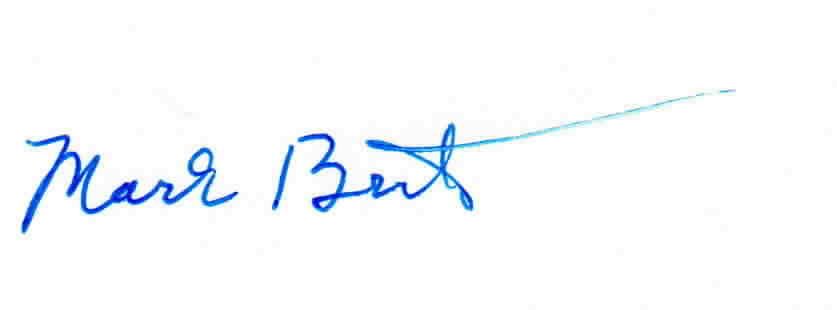 Mark Bert